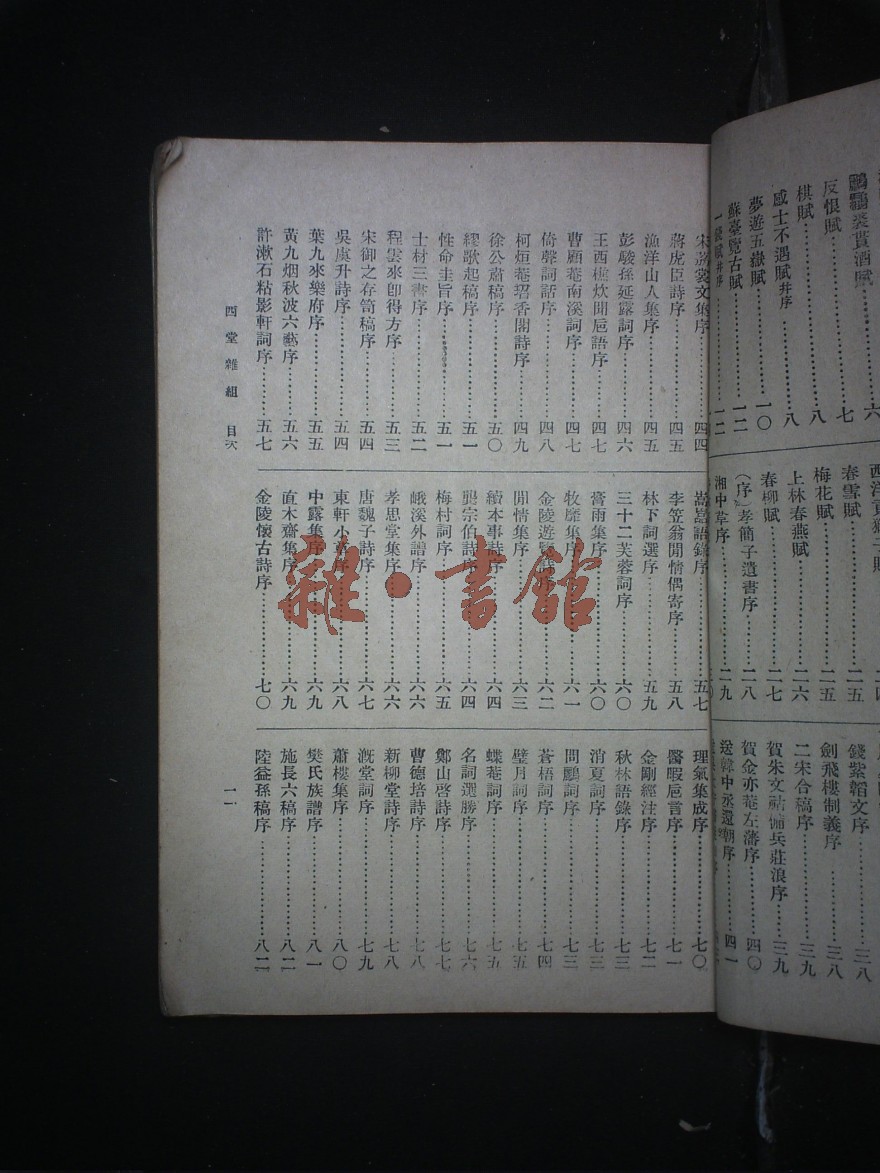 反恨賦……七
棋賦……八
感士不遇賦并序……八
夢遊五嶽賦……一〇
蘇臺覽古賦……一二
春雪賦……二五
梅花賦……二五
上林春燕賦……二六
春柳賦……二七
(序)孝簡子遺書序……二八
湘中草序……二九
錢紫韜文序……三八
劍飛樓制義序……三八
二宋合稿序……三九
賀朱文祜備兵莊浪序……三九
賀金亦菴左藩序……四〇
送韓中丞還朝序……四一
宋荔裳文集序……四四
蔣虎臣詩序……四五
漁洋山人集序……四五
彭駿孫延露詞序……四六
王西樵炊聞巵語序……四七
曹顧菴南溪詞序……四七
倚聲詞話序……四八
柯烜菴珺香閣詩序……四九
徐公肅稿序……五〇
繆歌起稿序……五一
性命圭旨序……五一
士材三書序……五二
程雲來卽得方序……五三
宋御之存笥稿序……五四
吳虞升詩序……五四
葉九來樂府序……五五
黃九烟秋波六藝序……五六
許漱石粘影軒詞序……五七
嵩嵓語錄序……五七
李笠翁閒情偶寄序……五八
林下詞選序……五九
三十二芙蓉詞序……六〇
膏雨集序……六〇
牧靡集序……六一
金陵遊覽詩序……六二
閒情集序……六三
續本事詩序……六四
龔宗伯詩序……六四
梅村詞序……六五
峨溪外譜序……六六
孝思堂集序……六六
唐魏子詩序……六七
東軒小草序……六八
中露集序……六九
直木齋集序……六九
金陵懷古詩序……七〇
理氣集成序……七〇
醫暇巵言序……七一
金剛經注序……七二
秋林語錄序……七三
消夏詞序……七三
問鸝詞序……七三
蒼梧詞序……七四
璧月詞序……七五
蝶菴詞序……七五
名詞選勝序……七六
鄭山啓詩序……七七
曹德培詩序……七八
新柳堂詩序……七八
溉堂詞序……七九
蕭樓集序……八〇
樊氏族譜序……八一
施長六稿序……八二
陸益孫稿序……八二
西堂雜組 目次
一一
雜·書館